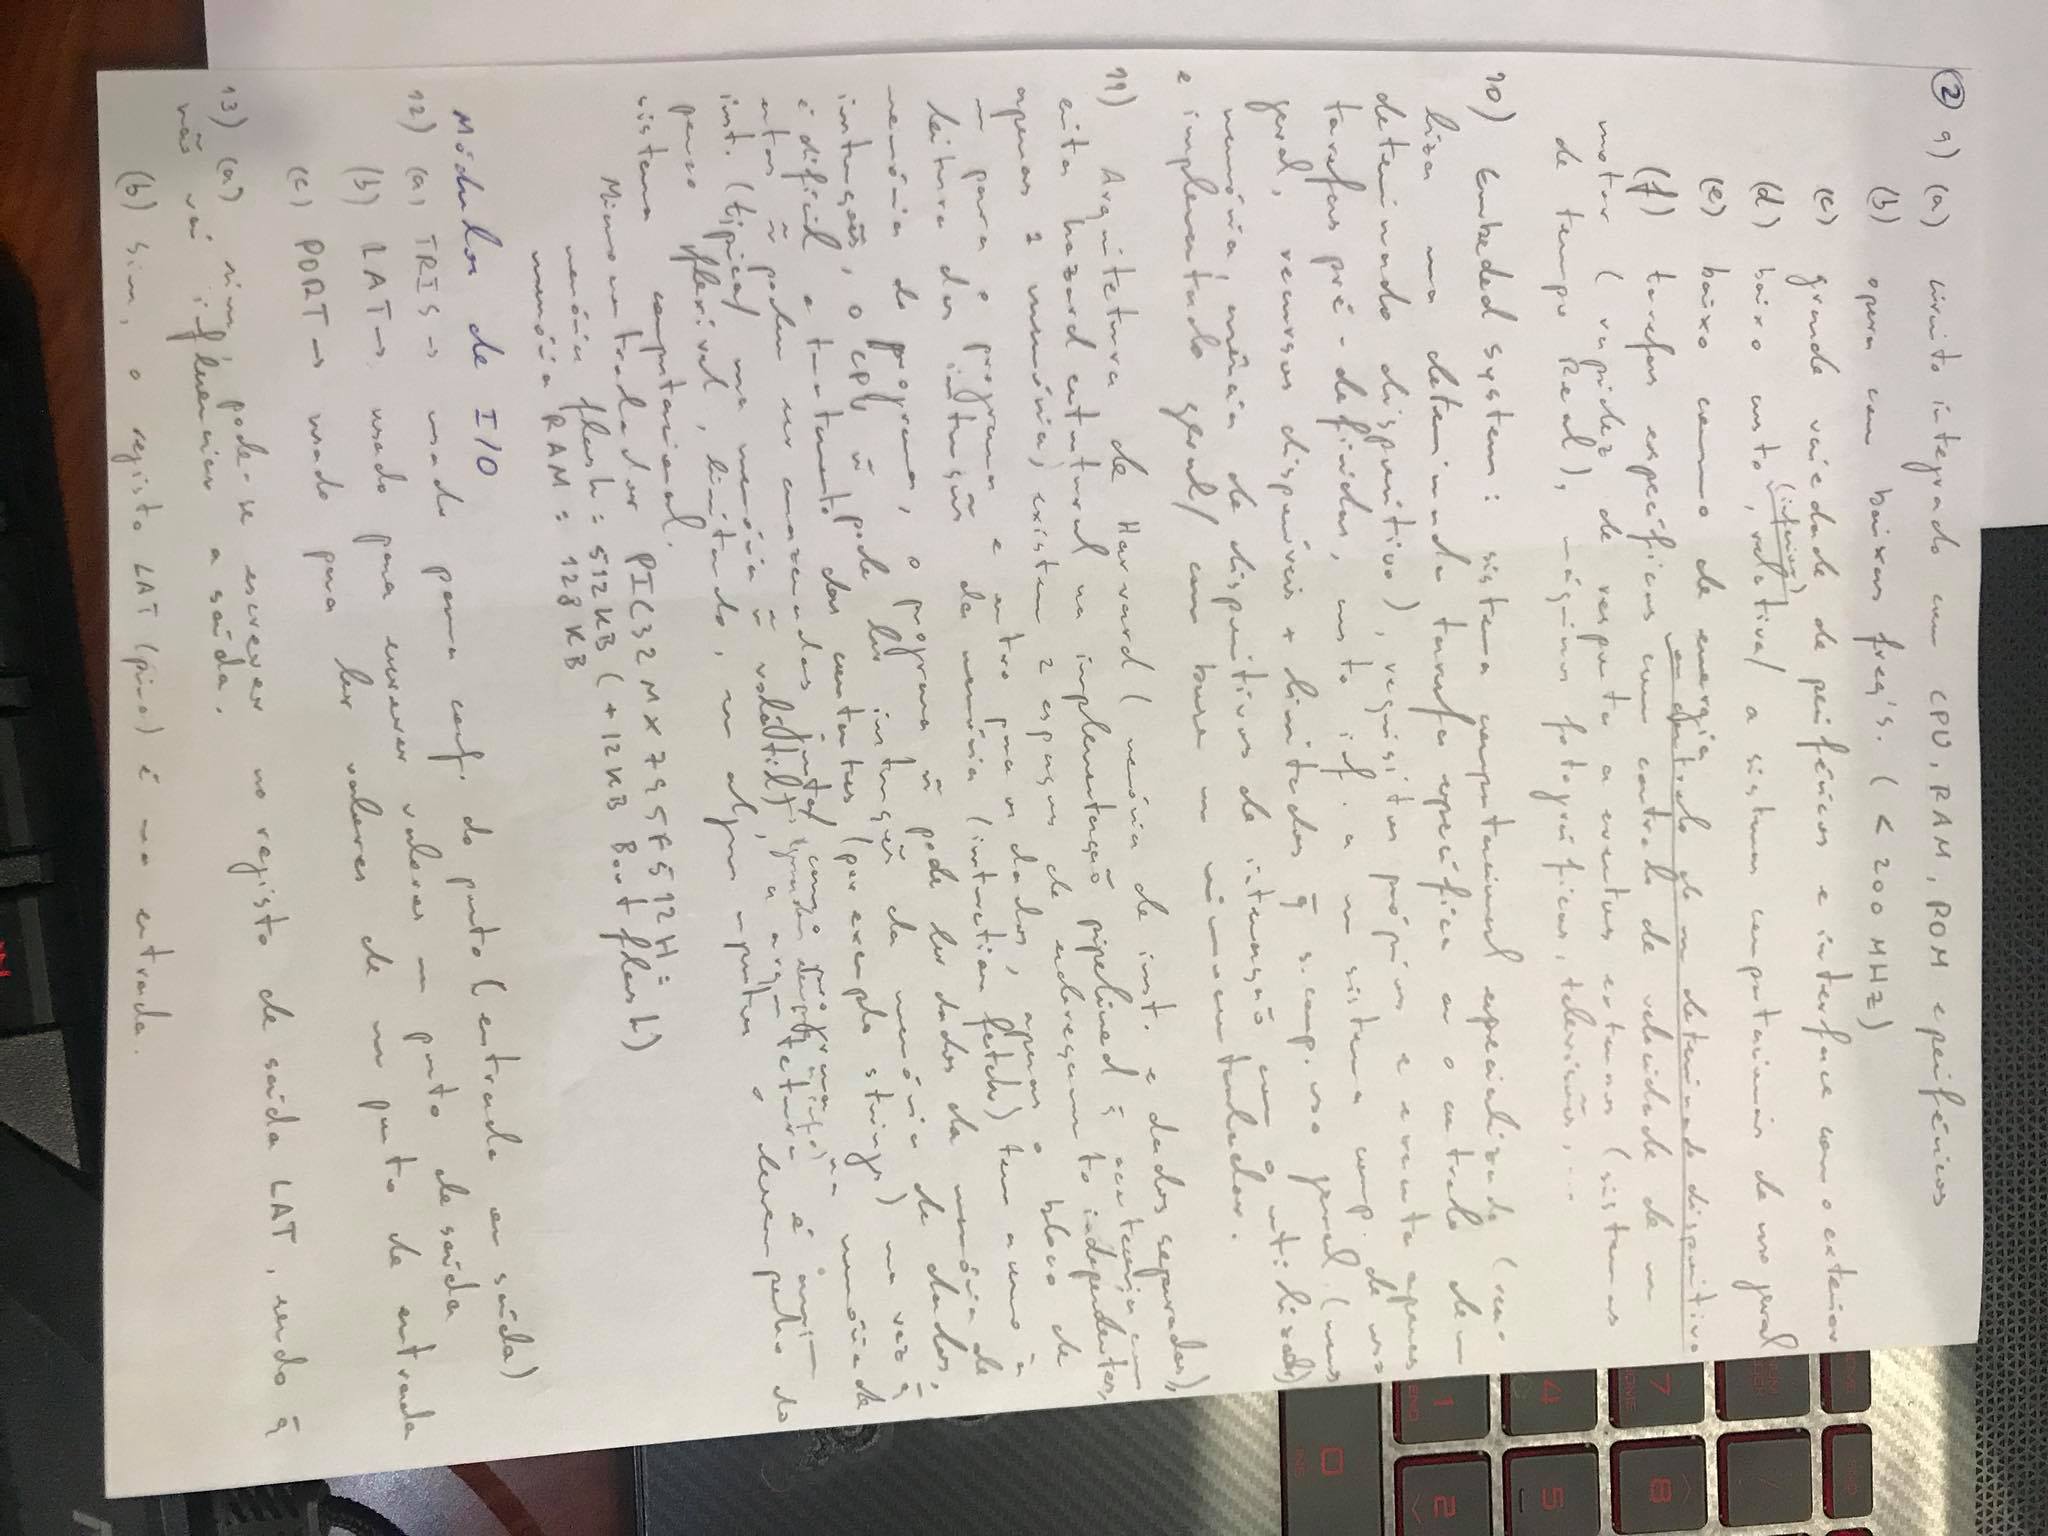 ② 9) (a) circuito integrado com CPU, RAM, ROM e periféricos
(b) opera com baixas freq's. (< 200 MHz)
(c) grande variedade de periféricos e interface com o exterior
(inferior)
(d) baixo custo, relativa/ a sistemas computacionais de uso geral
(e) baixo consumo de energia
ou controlo de um determinado dispositivo
(f) tarefas específicas com controlo de velocidade de um
motor (rapidez de resposta a eventos externos (sistemas
de tempo Real), máquinas fotográficas, televisões, ...
10) Embeded system: sistema computacional especializado (rea-
liza uma determinada tarefa específica ou o controlo de um
determinado dispositivo), requisitos próprios e executa apenas
tarefas pré-definidas, custo inf. a um sistema comp. de uso
geral, recursos disponíveis + limitados q̄ s. comp. uso geral (menos
memória, ausência de dispositivos de interação com o utilizador)
e implementado geral/ com base num microcontrolador.
11) Arquitetura de Harvard (memória de inst. e dados separadas),
evita hazard estrutural na implementação pipelined q̄ aconteceria com
apenas 1 memória, existem 2 espaços de endereçamento independentes,
um para o programa e outro para os dados, apenas o bloco de
leitura das instruções da memória (instruction fetch) tem acesso à
memória do programa, o programa ñ pode ler dados da memória de
instruções, o CPU ñ pode ler instruções da memória de dados,
é difícil o tratamento das constantes (por exemplo strings) uma vez q̄
estas ñ podem ser armazenadas junta/ com o programa na memória de
inst. (típica/ uma memória ñ volátil), a arquitetura é assim
pouco flexível, limitando, em alguns aspetos o desempenho do
sistema computacional.
Microcontrolador PIC32MX795F512H:
memória flash: 512KB (+12KB Boot flash)
memória RAM: 128 KB
Módulos de I/O
12) (a) TRIS → usado para conf. do porto (entrada ou saída)
(b) LAT → usado para escrever valores num porto de saída
(c) PORT → usado para ler valores de um porto de entrada
13) (a) sim, pode-se escrever no registo de saída LAT, sendo q̄
não vai influenciar a saída.
(b) Sim, o registo LAT (pino) é uma entrada.
7
HOME
8
4
5
1
END
2
0
INS